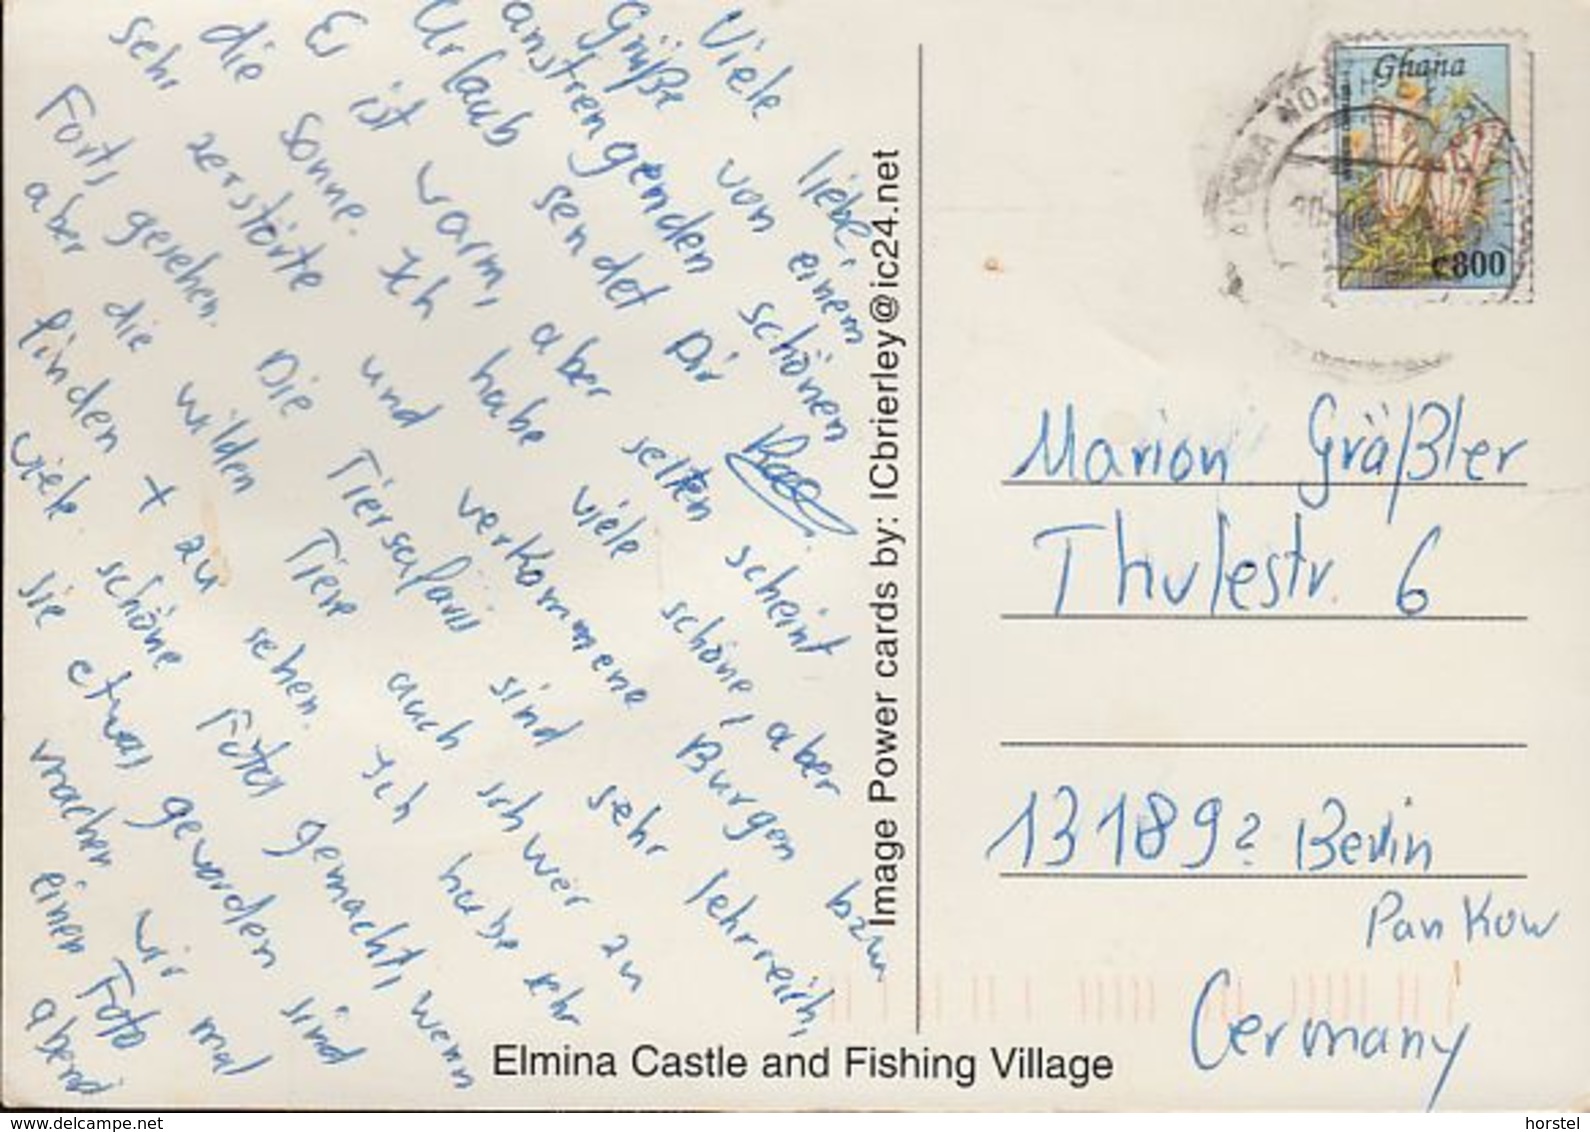 Viele liebe
Grüße von einem
anstrengenden schönen
Urlaub sendet Dir
Es ist warm, aber selten scheint
die Sonne. Ich habe viele schöne, aber
sehr zerstörte und verkommene Burgen bzw.
Forts gesehen. Die Tiersafaris sind sehr lehrreich,
aber die wilden Tiere auch schwer zu
finden + zu sehen. Ich habe sehr
viele schöne Fotos gemacht, wenn
sie etwas geworden sind
machen wir mal
einen Foto
abend
Image Power cards by: ICbrierley@ic24.net
Elmina Castle and Fishing Village
Ghana
¢800
Marion Gräßler
Thulestr. 6
13189? Berlin
Pankow
Germany
www.delcampe.net
horstel